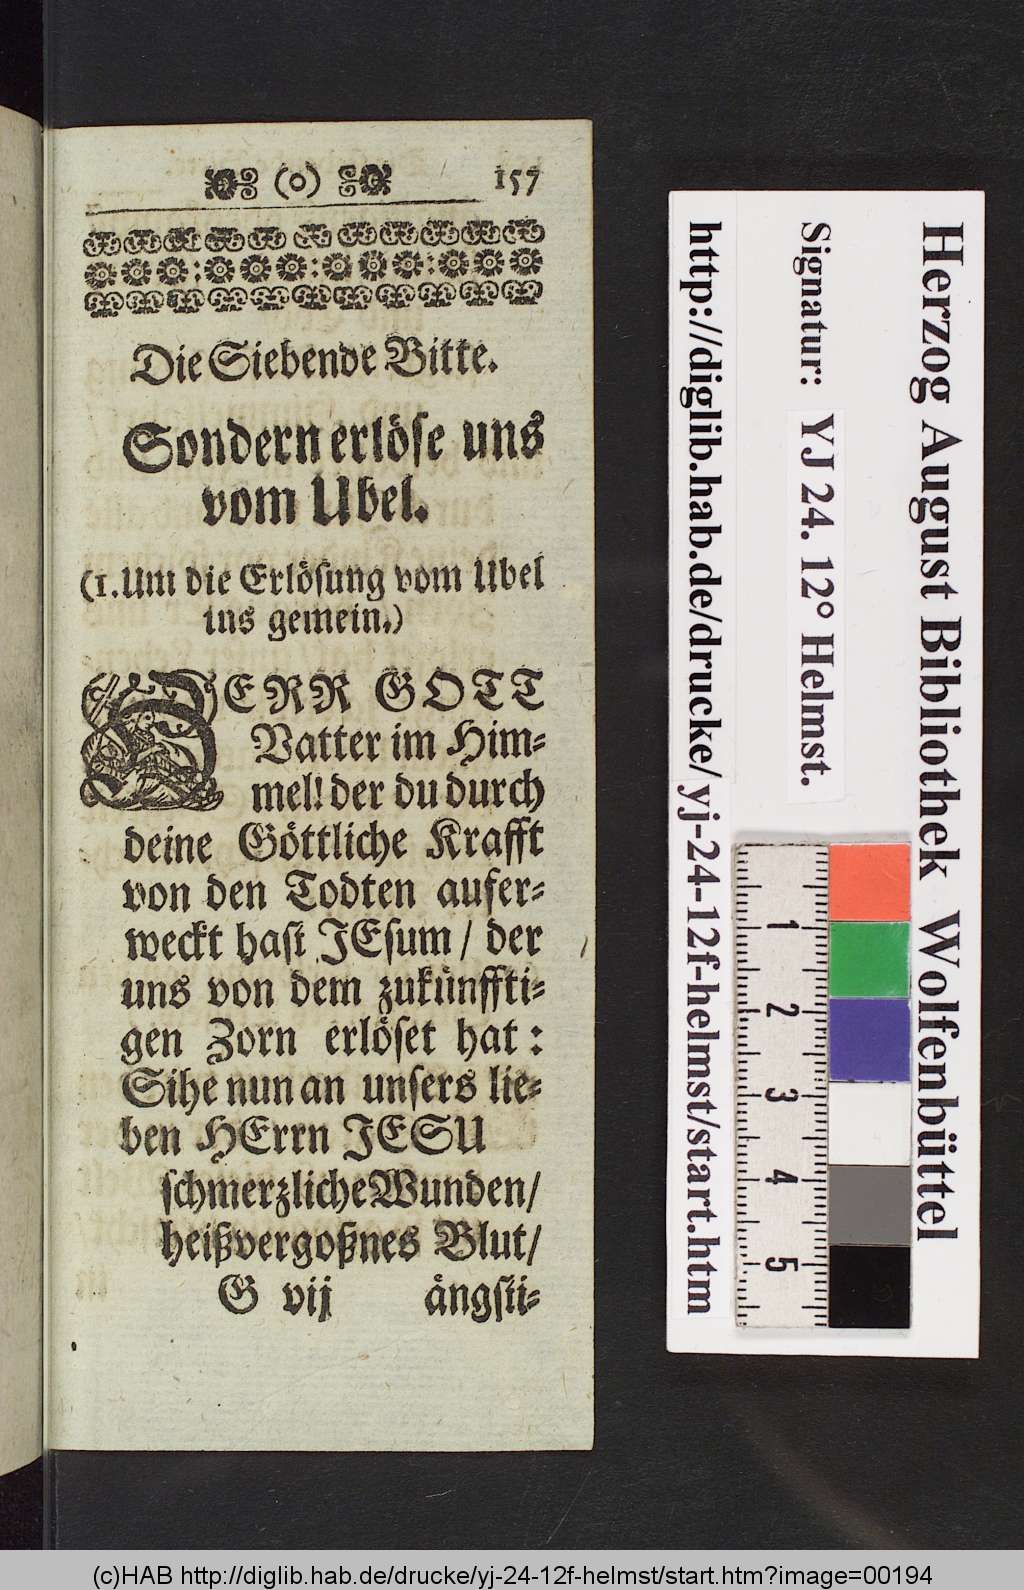 (o) 157
Die Siebende Bitte.
Sondern erlöse uns
vom Ubel.
(1. Um die Erlösung vom Ubel
ins gemein.)
HERR GOTT
Vatter im Him-
mel! der du durch
deine Göttliche Krafft
von den Todten aufer-
weckt hast JEsum / der
uns von dem zukünffti-
gen Zorn erlöset hat:
Sihe nun an unsers lie-
ben HErrn JESU
schmerzliche Wunden/
heißvergoßnes Blut/
G vij ängsti-
Herzog August Bibliothek Wolfenbüttel
Signatur: YJ 24. 12° Helmst.
http://diglib.hab.de/drucke/yj-24-12f-helmst/start.htm
1
2
3
4
5
(c)HAB http://diglib.hab.de/drucke/yj-24-12f-helmst/start.htm?image=00194